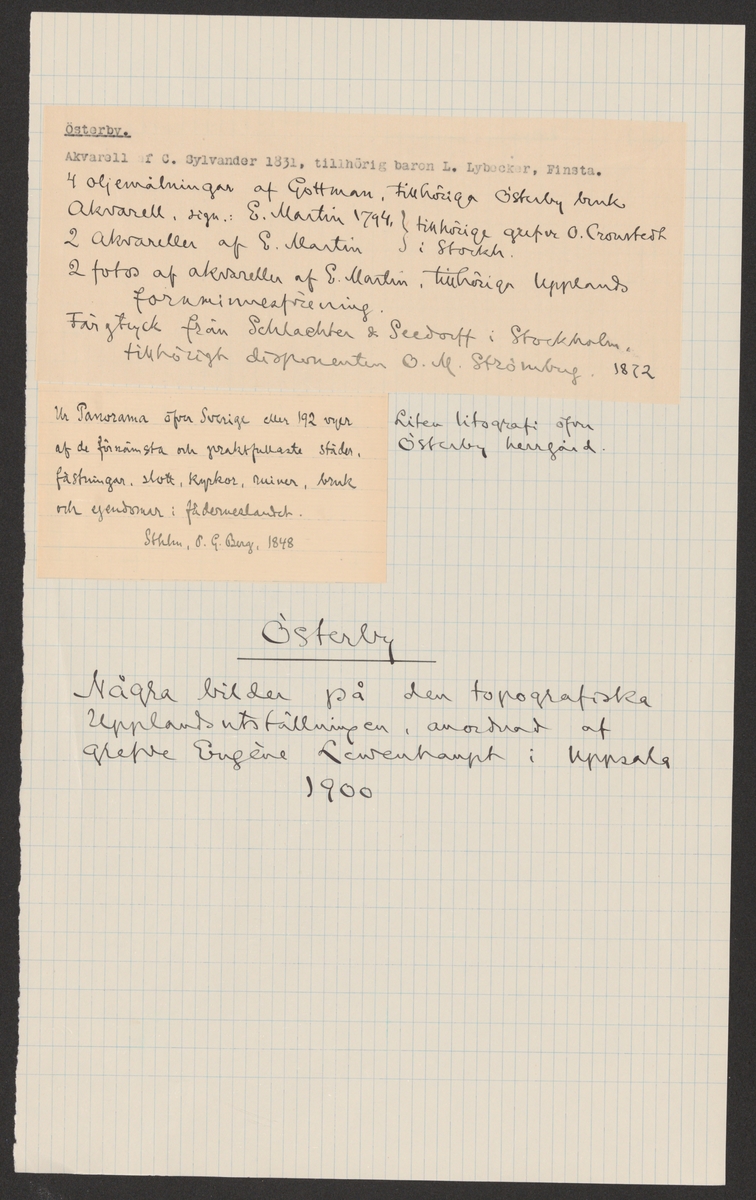 Österby.
Akvarell af C. Sylvander 1831, tillhörig baron L. Lybecker, Finsta.
4 oljemålningar af Gottman, tillhöriga Österby bruk
Akvarell, sign.: E. Martin 1794, } tillhöriga grefve O. Cronstedt
2 akvareller af E. Martin } i Stockh.
2 fotos af akvareller af E. Martin, tillhöriga Upplands
fornminnesförening.
Färgtryck från Schlachter & Seedorff i Stockholm,
tillhörigt disponenten O. M. Strömberg. 1872
Ur Panorama öfver Sverige eller 192 vyer
af de förnämsta och praktfullaste städer,
fästningar, slott, kyrkor, ruiner, bruk
och egendomar i fäderneslandet.
Sthlm, P. G. Berg, 1848
Liten litografi öfver
Österby herrgård.
Österby
Några bilder på den topografiska
Upplandsutställningen, anordnad af
grefve Eugène Lewenhaupt i Uppsala
1900